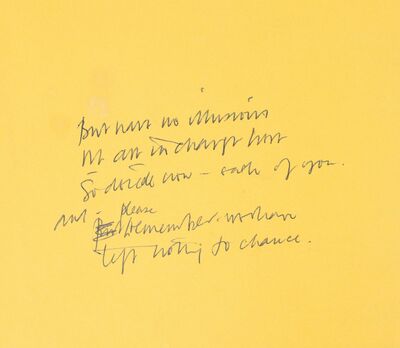 But have no illusions
We are in charge here
So decide now – each of you.
and – please
remember we have
left nothing to chance.